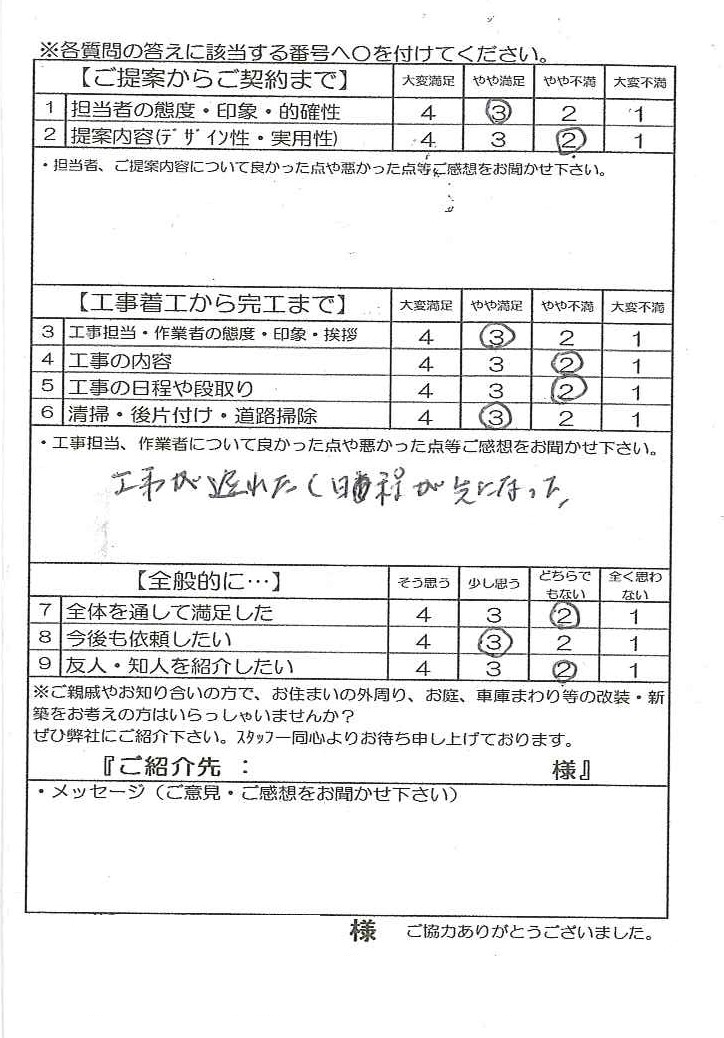 ※各質問の答えに該当する番号へ〇を付けてください。
【ご提案からご契約まで】 大変満足 やや満足 やや不満 大変不満
1 担当者の態度・印象・的確性 4 3 2 1
2 提案内容(ﾃﾞｻﾞｲﾝ性・実用性) 4 3 2 1
・担当者、ご提案内容について良かった点や悪かった点等ご感想をお聞かせ下さい。
【工事着工から完工まで】 大変満足 やや満足 やや不満 大変不満
3 工事担当・作業者の態度・印象・挨拶 4 3 2 1
4 工事の内容 4 3 2 1
5 工事の日程や段取り 4 3 2 1
6 清掃・後片付け・道路掃除 4 3 2 1
・工事担当、作業者について良かった点や悪かった点等ご感想をお聞かせ下さい。
工事が遅れた 日程が気になった
【全般的に…】 そう思う 少し思う どちらで 全く思わ
もない ない
7 全体を通して満足した 4 3 2 1
8 今後も依頼したい 4 3 2 1
9 友人・知人を紹介したい 4 3 2 1
※ご親戚やお知り合いの方で、お住まいの外周り、お庭、車庫まわり等の改装・新
築をお考えの方はいらっしゃいませんか？
ぜひ弊社にご紹介下さい。ｽﾀｯﾌ一同心よりお待ち申し上げております。
『ご紹介先： 様』
・メッセージ（ご意見・ご感想をお聞かせ下さい）
様 ご協力ありがとうございました。